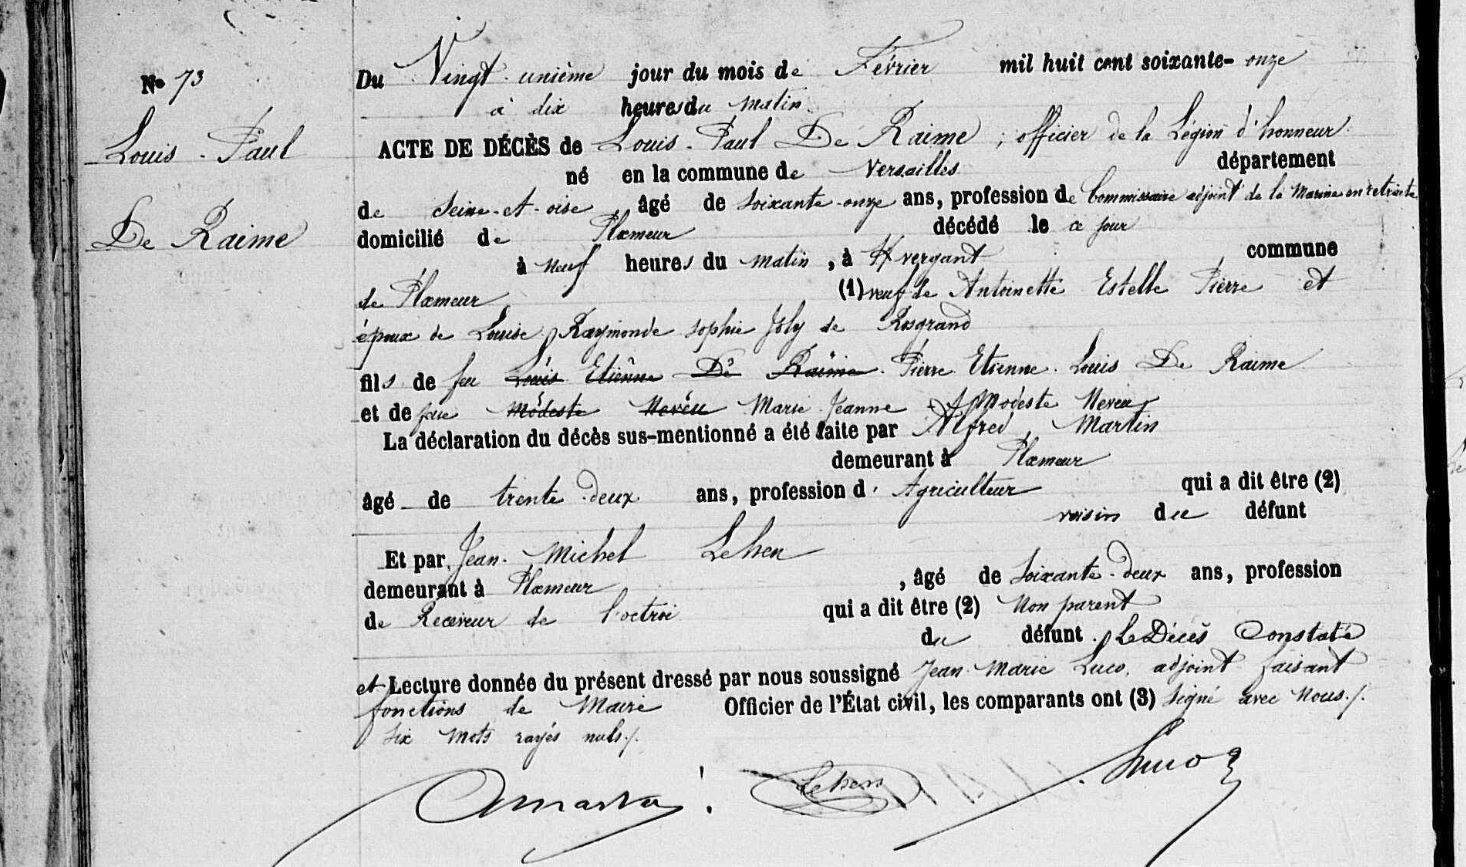 No 73
Louis - Paul
De Raime
Du Vingt unième jour du mois de Février mil huit cent soixante- onze
à dix heures du matin.
ACTE DE DÉCÈS de Louis - Paul De Raime, officier de la Légion d'honneur
né en la commune de Versailles département
de Seine-et-oise âgé de soixante-onze ans, profession de Commissaire adjoint de la Marine en retraite
domicilié de Plœmeur décédé le ce jour
à neuf heures du matin, à commune
de Plœmeur (1) veuf de Antoinette Estelle Pierre et
époux de Louise Raymonde Sophie Joly de Rosgrand
fils de feu Louis Etienne De Raime Pierre Etienne Louis De Raime
et de feue Modeste Neveu Marie Jeanne Modeste Neveu
La déclaration du décès sus-mentionné a été faite par Alfred Martin
demeurant à Plœmeur
âgé de trente-deux ans, profession d' Agriculteur qui a dit être (2)
voisin du défunt
Et par Jean-Michel Lehen
demeurant à Plœmeur, âgé de soixante-deux ans, profession
de Receveur de l'octroi qui a dit être (2) Non parent
du défunt. Le Décès Constaté
et Lecture donnée du présent dressé par nous soussigné Jean-Marie Luco, adjoint faisant
fonctions de Maire Officier de l'État civil, les comparants ont (3) signé avec Nous ./.
Six mots rayés nuls ./.
Lehen Luco